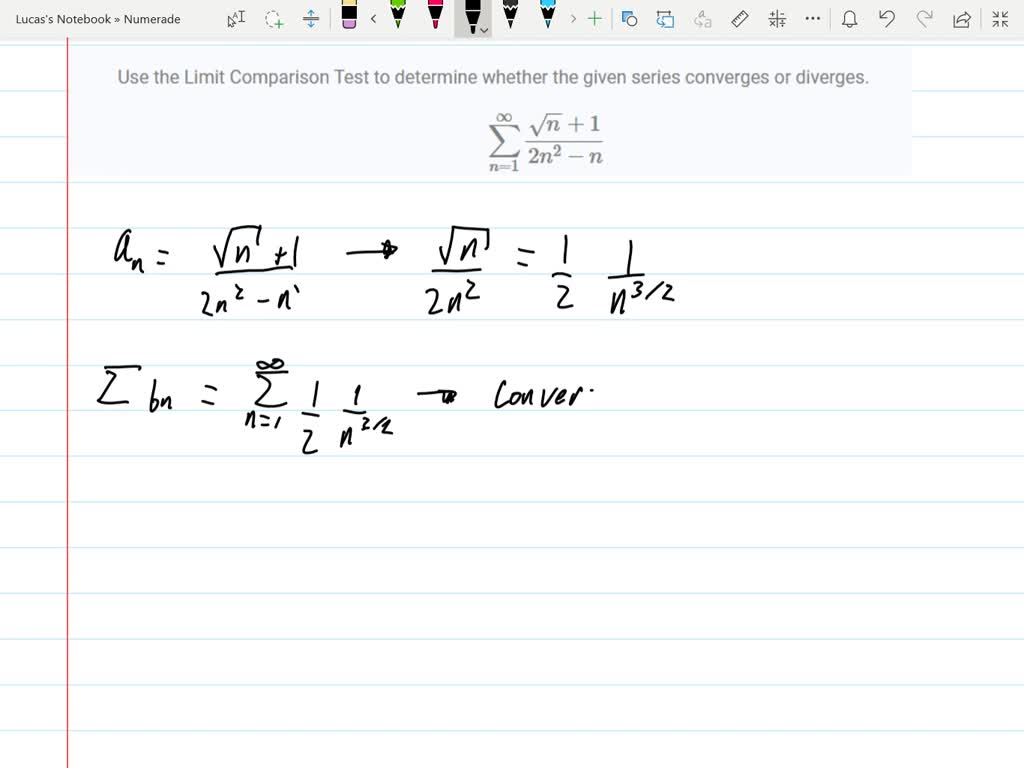 Lucas's Notebook » Numerade
Use the Limit Comparison Test to determine whether the given series converges or diverges.
∞∑n=1 (√n + 1)/(2n² − n)
aₙ = (√n + 1)/(2n² − n) → √n/(2n²) = 1/2 1/n^3/2
∑ bₙ = ∞∑n=1 1/2 1/n^3/2 → Conver.